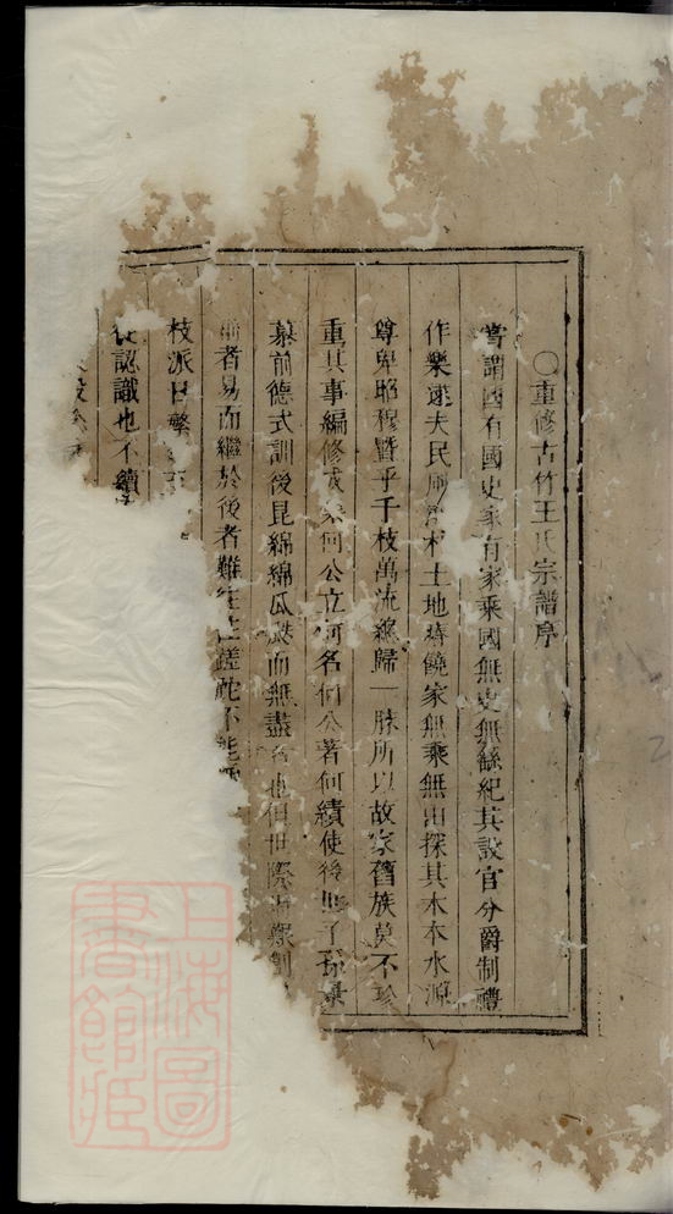 ○重修古竹王氏宗譜序
嘗謂國有國史家有家乘國無史無繇紀其設官分爵制禮
作樂逮夫民風 土地 饒家無乘無由探其木本水源
尊卑昭穆暨乎千枝萬流總歸一脉所以故家舊族莫不珍
重其事編修 何公立何名何公著何績使後 子孫
慕前德式訓後昆綿綿瓜瓞而無盡 也但世際 艱創
前者易而繼於後者難 蹉跎不能
枝派日繁
從認識也不續
上海圖
書館藏